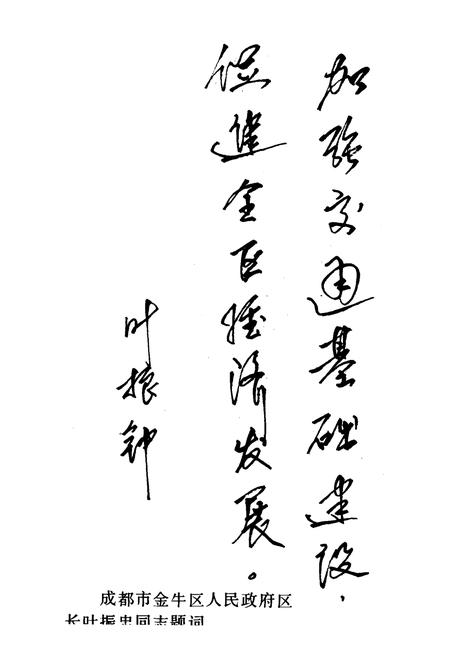 加强交通基础建设,
促進全区经济发展。
叶振钟
成都市金牛区人民政府区
长叶振忠同志题词